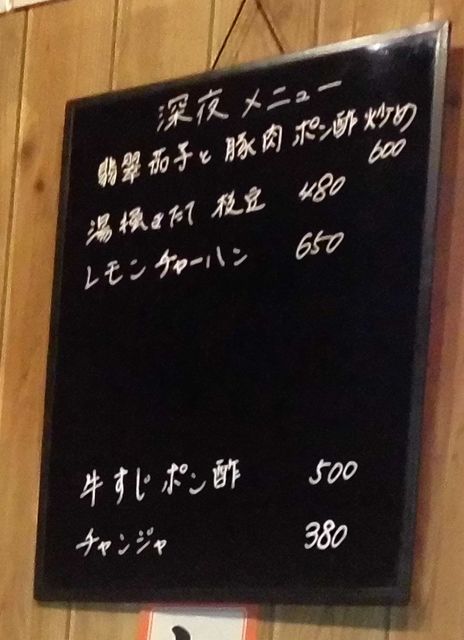 深夜メニュー
翡翠茄子と豚肉ポン酢炒め
600
湯掻きたて枝豆 480
レモンチャーハン 650
牛すじポン酢 500
チャンジャ 380